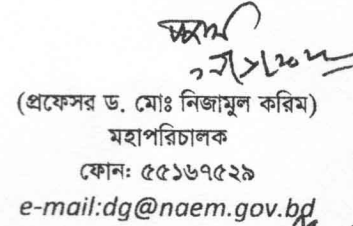 (প্রফেসর ড. মোঃ নিজামুল করিম)
মহাপরিচালক
ফোনঃ ৫৫১৬৭৫২৯
e-mail:dg@naem.gov.bd